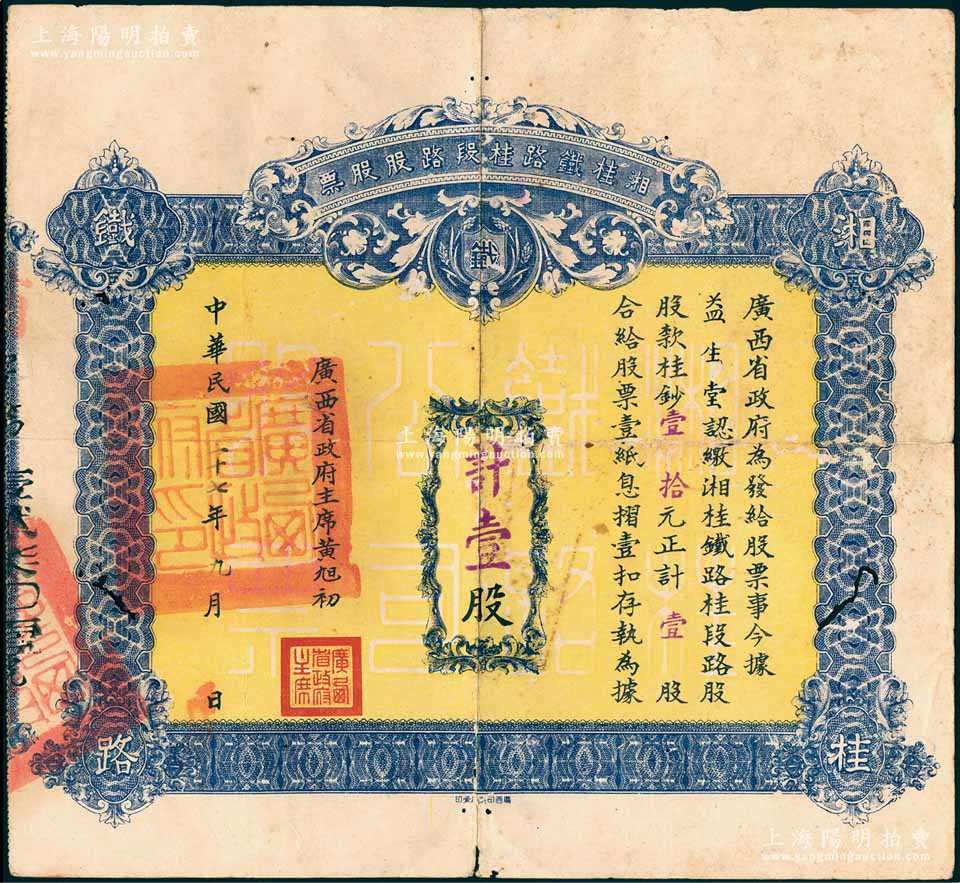 上海陽明拍賣
www.yangmingauction.com
湘桂鐵路桂段路股股票
湘
桂
鐵
路
鐵
廣西省政府為發給股票事今據
益生堂認繳湘桂鐵路桂段路股
股款桂鈔壹拾元正計壹股
合給股票壹紙息摺壹扣存執為據
計壹股
廣西省政府主席黃旭初
中華民國二十七年九月 日
廣西
省政府
主席
上海陽明拍賣
www.yangmingauction.com
上海陽明拍賣
www.yangmingauction.com